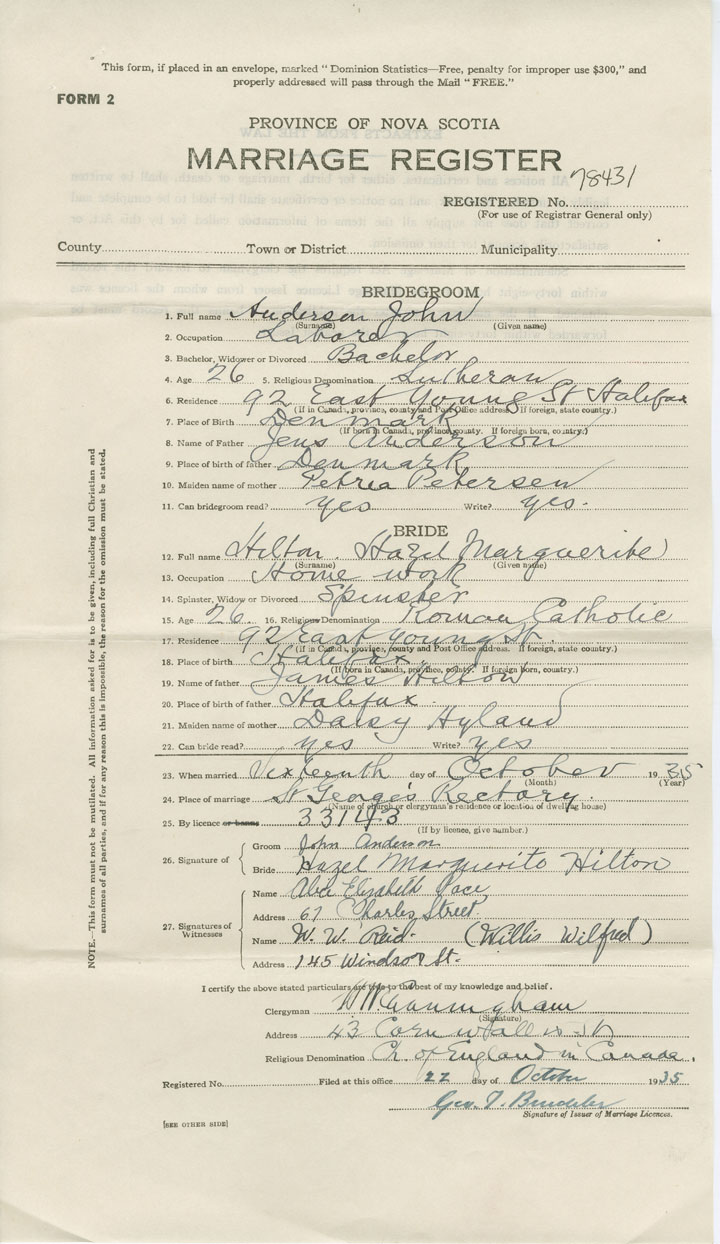 This form, if placed in an envelope, marked " Dominion Statistics—Free, penalty for improper use $300," and
properly addressed will pass through the Mail " FREE."
FORM 2
PROVINCE OF NOVA SCOTIA
MARRIAGE REGISTER
78431
REGISTERED No.
(For use of Registrar General only)
County Town or District Municipality
BRIDEGROOM
1. Full name Anderson John
(Surname) (Given name)
2. Occupation Laborer
3. Bachelor, Widower or Divorced Bachelor
4. Age 26 5. Religious Denomination Lutheran
6. Residence 92 East Young St Halifax
(If in Canada, province, county and Post Office address. If foreign, state country.)
7. Place of Birth Denmark
(If born in Canada, province, county. If foreign born, country.)
8. Name of Father Jens Anderson
9. Place of birth of father Denmark
10. Maiden name of mother Petrea Petersen
11. Can bridegroom read? yes Write? yes.
BRIDE
12. Full name Hilton. Hazel Marguerite
(Surname) (Given name)
13. Occupation Home work
14. Spinster, Widow or Divorced Spinster
15. Age 26. 16. Religious Denomination Roman Catholic
17. Residence 92 East Young St.
(If in Canada, province, county and Post Office address. If foreign, state country.)
18. Place of birth Halifax
(If born in Canada, province, county. If foreign born, country.)
19. Name of father James Hilton
20. Place of birth of father Halifax
21. Maiden name of mother Daisy Hyland
22. Can bride read? yes Write? yes
23. When married Sixteenth day of October 1935
(Month) (Year)
24. Place of marriage St George's Rectory.
(Name of church or clergyman's residence or location of dwelling house)
25. By licence or banns 33143
(If by licence, give number.)
26. Signature of Groom John Anderson
Bride Hazel Marguerite Hilton
27. Signatures of Witnesses
Name Alice Elizabeth Pace
Address 67 Charles Street
Name W. W. Reid. (Willis Wilfred)
Address 145 Windsor St.
I certify the above stated particulars are true to the best of my knowledge and belief.
Clergyman Cunningham
(Signature)
Address 43 Cornwallis St
Religious Denomination Ch. of England in Canada.
Registered No. Filed at this office 22 day of October 1935
Geo. T.
Signature of Issuer of Marriage Licences.
[SEE OTHER SIDE]
NOTE.—This form must not be mutilated. All information asked for is to be given, including full Christian and
surnames of all parties, and if for any reason this is impossible, the reason for the omission must be stated.